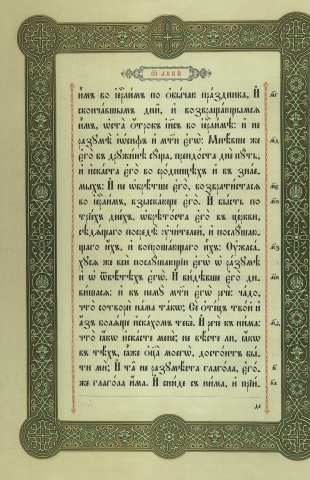 Ѿ лꙋкѝ
и҆̀мъ во і҆ерⷭ҇лимъ по ѡ҆бы́чаю пра́здника, И҆
сконча́вшымъ дни̑, и҆ возвраща́ющымсѧ
и҆̀мъ, ѡ҆ста̀ ѻ҆́трокъ і҆и҃съ во і҆ерⷭ҇ли́мѣ: и҆ не
разꙋмѣ̀ і҆ѡ́сифъ и҆ мт҃и є҆гѡ̀: Мнѣ́вше же
є҆го̀ въ дрꙋжи́нѣ сꙋ́ща, преидо́ста днѐ пꙋ́ть,
и҆ иска́ста є҆го̀ во сро́дницѣхъ и҆ въ зна́е-
мыхъ: И҆ не ѡ҆брѣ́тше є҆го̀, возврати́стасѧ
во і҆ерⷭ҇ли́мъ, взыска́юще є҆го̀: И҆ бы́сть по
трїе́хъ дне́хъ, ѡ҆брѣто́ста є҆го̀ въ це́ркви,
сѣдѧ́щаго посредѣ̀ ᲂу҆чи́телей, и҆ послꙋ́шаю-
щаго и҆́хъ, и҆ вопроша́ющаго и҆̀хъ: Оу҆жаса́-
хꙋсѧ же всѝ послꙋ́шающїи є҆гѡ̀ ѡ҆ ра́зꙋмѣ
и҆ ѡ҆ ѿвѣ́тѣхъ є҆гѡ̀. И҆ ви́дѣвше є҆го̀ ди-
ви́шасѧ: и҆ къ немꙋ̀ мт҃и є҆гѡ̀ речѐ: ча́до,
что̀ сотворѝ на́ма та́кѡ; Сѐ ѻ҆те́цъ тво́й и҆
а҆́зъ болѧ́ще и҆ска́хомъ тебѐ: И҆ речѐ къ ни́ма:
что̀ ꙗ҆́кѡ и҆ска́сте менѐ; не вѣ́сте ли, ꙗ҆́кѡ
въ тѣ́хъ, ꙗ҆̀же ѻ҆ц҃а̀ моегѡ̀, досто́итъ бы́-
ти мѝ; И҆ та̑ не разꙋмѣ́ста глаго́ла, є҆го́-
же глаго́ла и҆́ма. И҆ сни́де съ ни́ма, и҆ прїи-